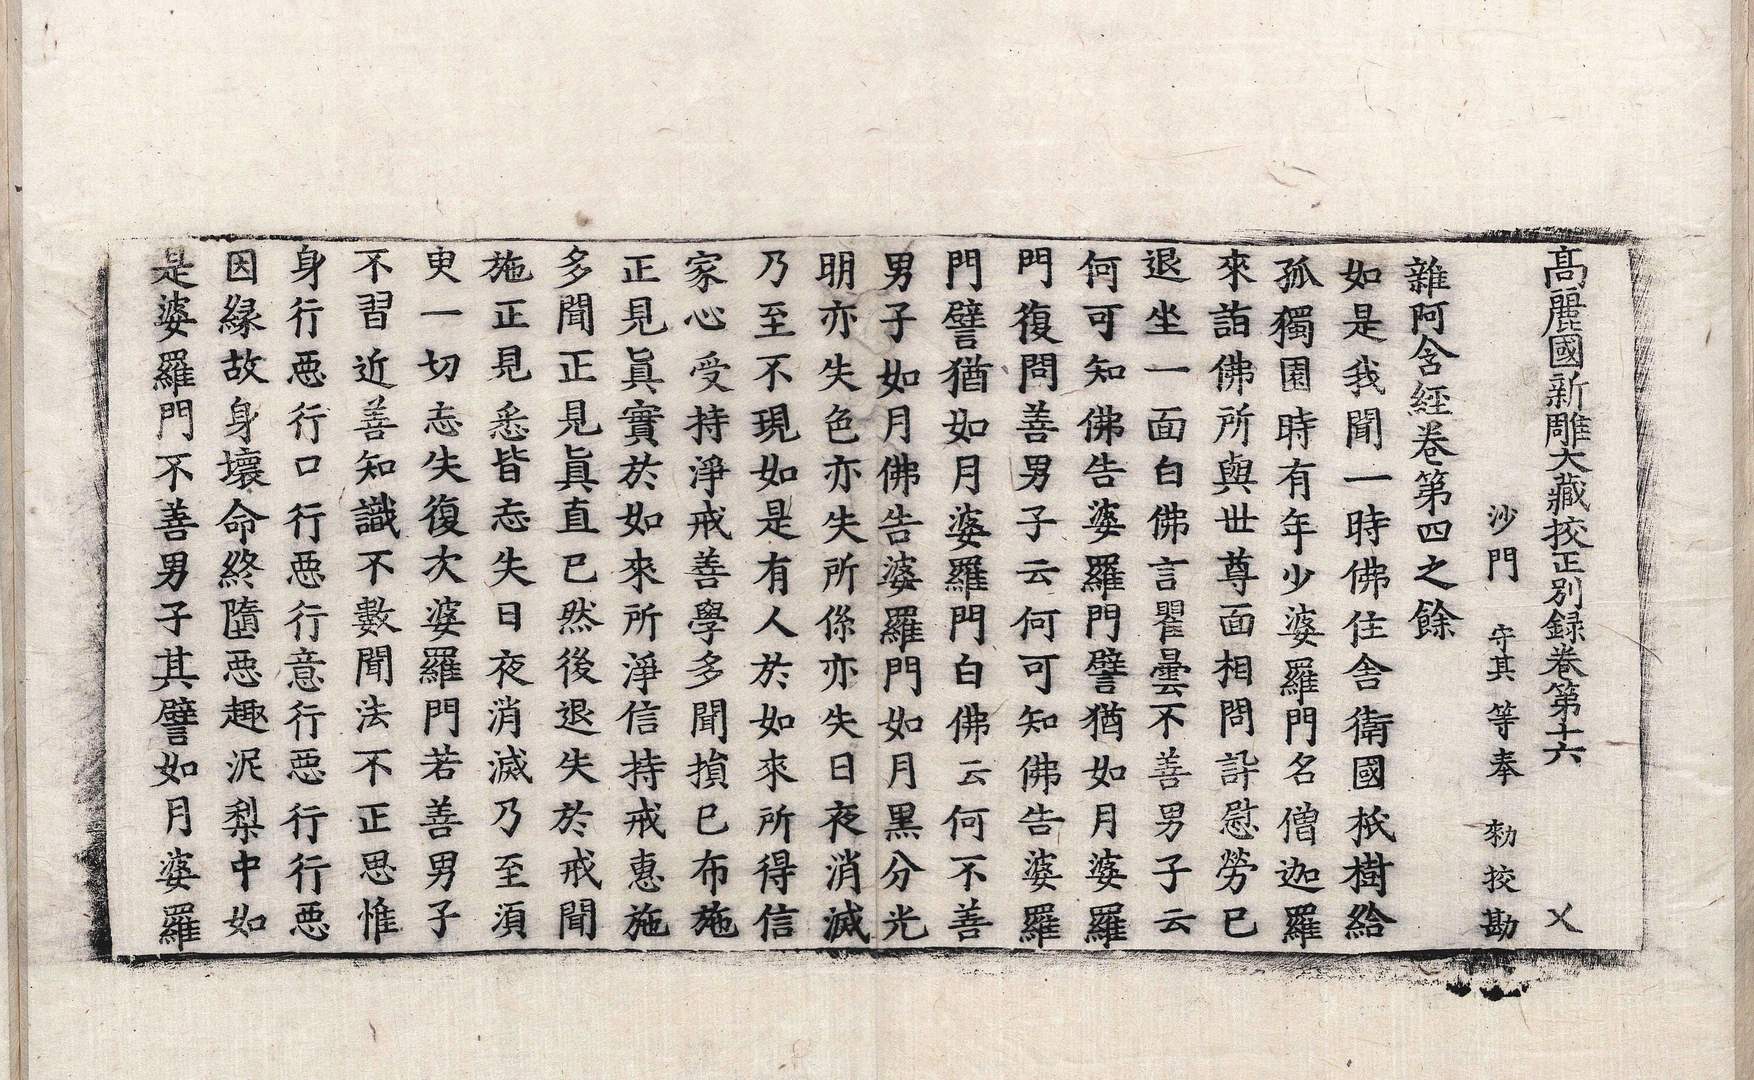 高麗國新雕大藏挍正別録卷第十六 㐅
沙門 守其 等奉 勑挍勘
雜阿含經卷第四之餘
如是我聞一時佛住舍衛國祇樹給
孤獨園時有年少婆羅門名僧迦羅
來詣佛所與世尊面相問訊慰勞已
退坐一面白佛言瞿曇不善男子云
何可知佛告婆羅門譬猶如月婆羅
門復問善男子云何可知佛告婆羅
門譬猶如月婆羅門白佛云何不善
男子如月佛告婆羅門如月黑分光
明亦失色亦失所係亦失日夜消滅
乃至不現如是有人於如來所得信
家心受持淨戒善學多聞損已布施
正見眞實於如來所淨信持戒惠施
多聞正見眞直已然後退失於戒聞
施正見悉皆忘失日夜消滅乃至須
臾一切忘失復次婆羅門若善男子
不習近善知識不數聞法不正思惟
身行惡行口行惡行意行惡行行惡
因緣故身壞命終墮惡趣泥梨中如
是婆羅門不善男子其譬如月婆羅